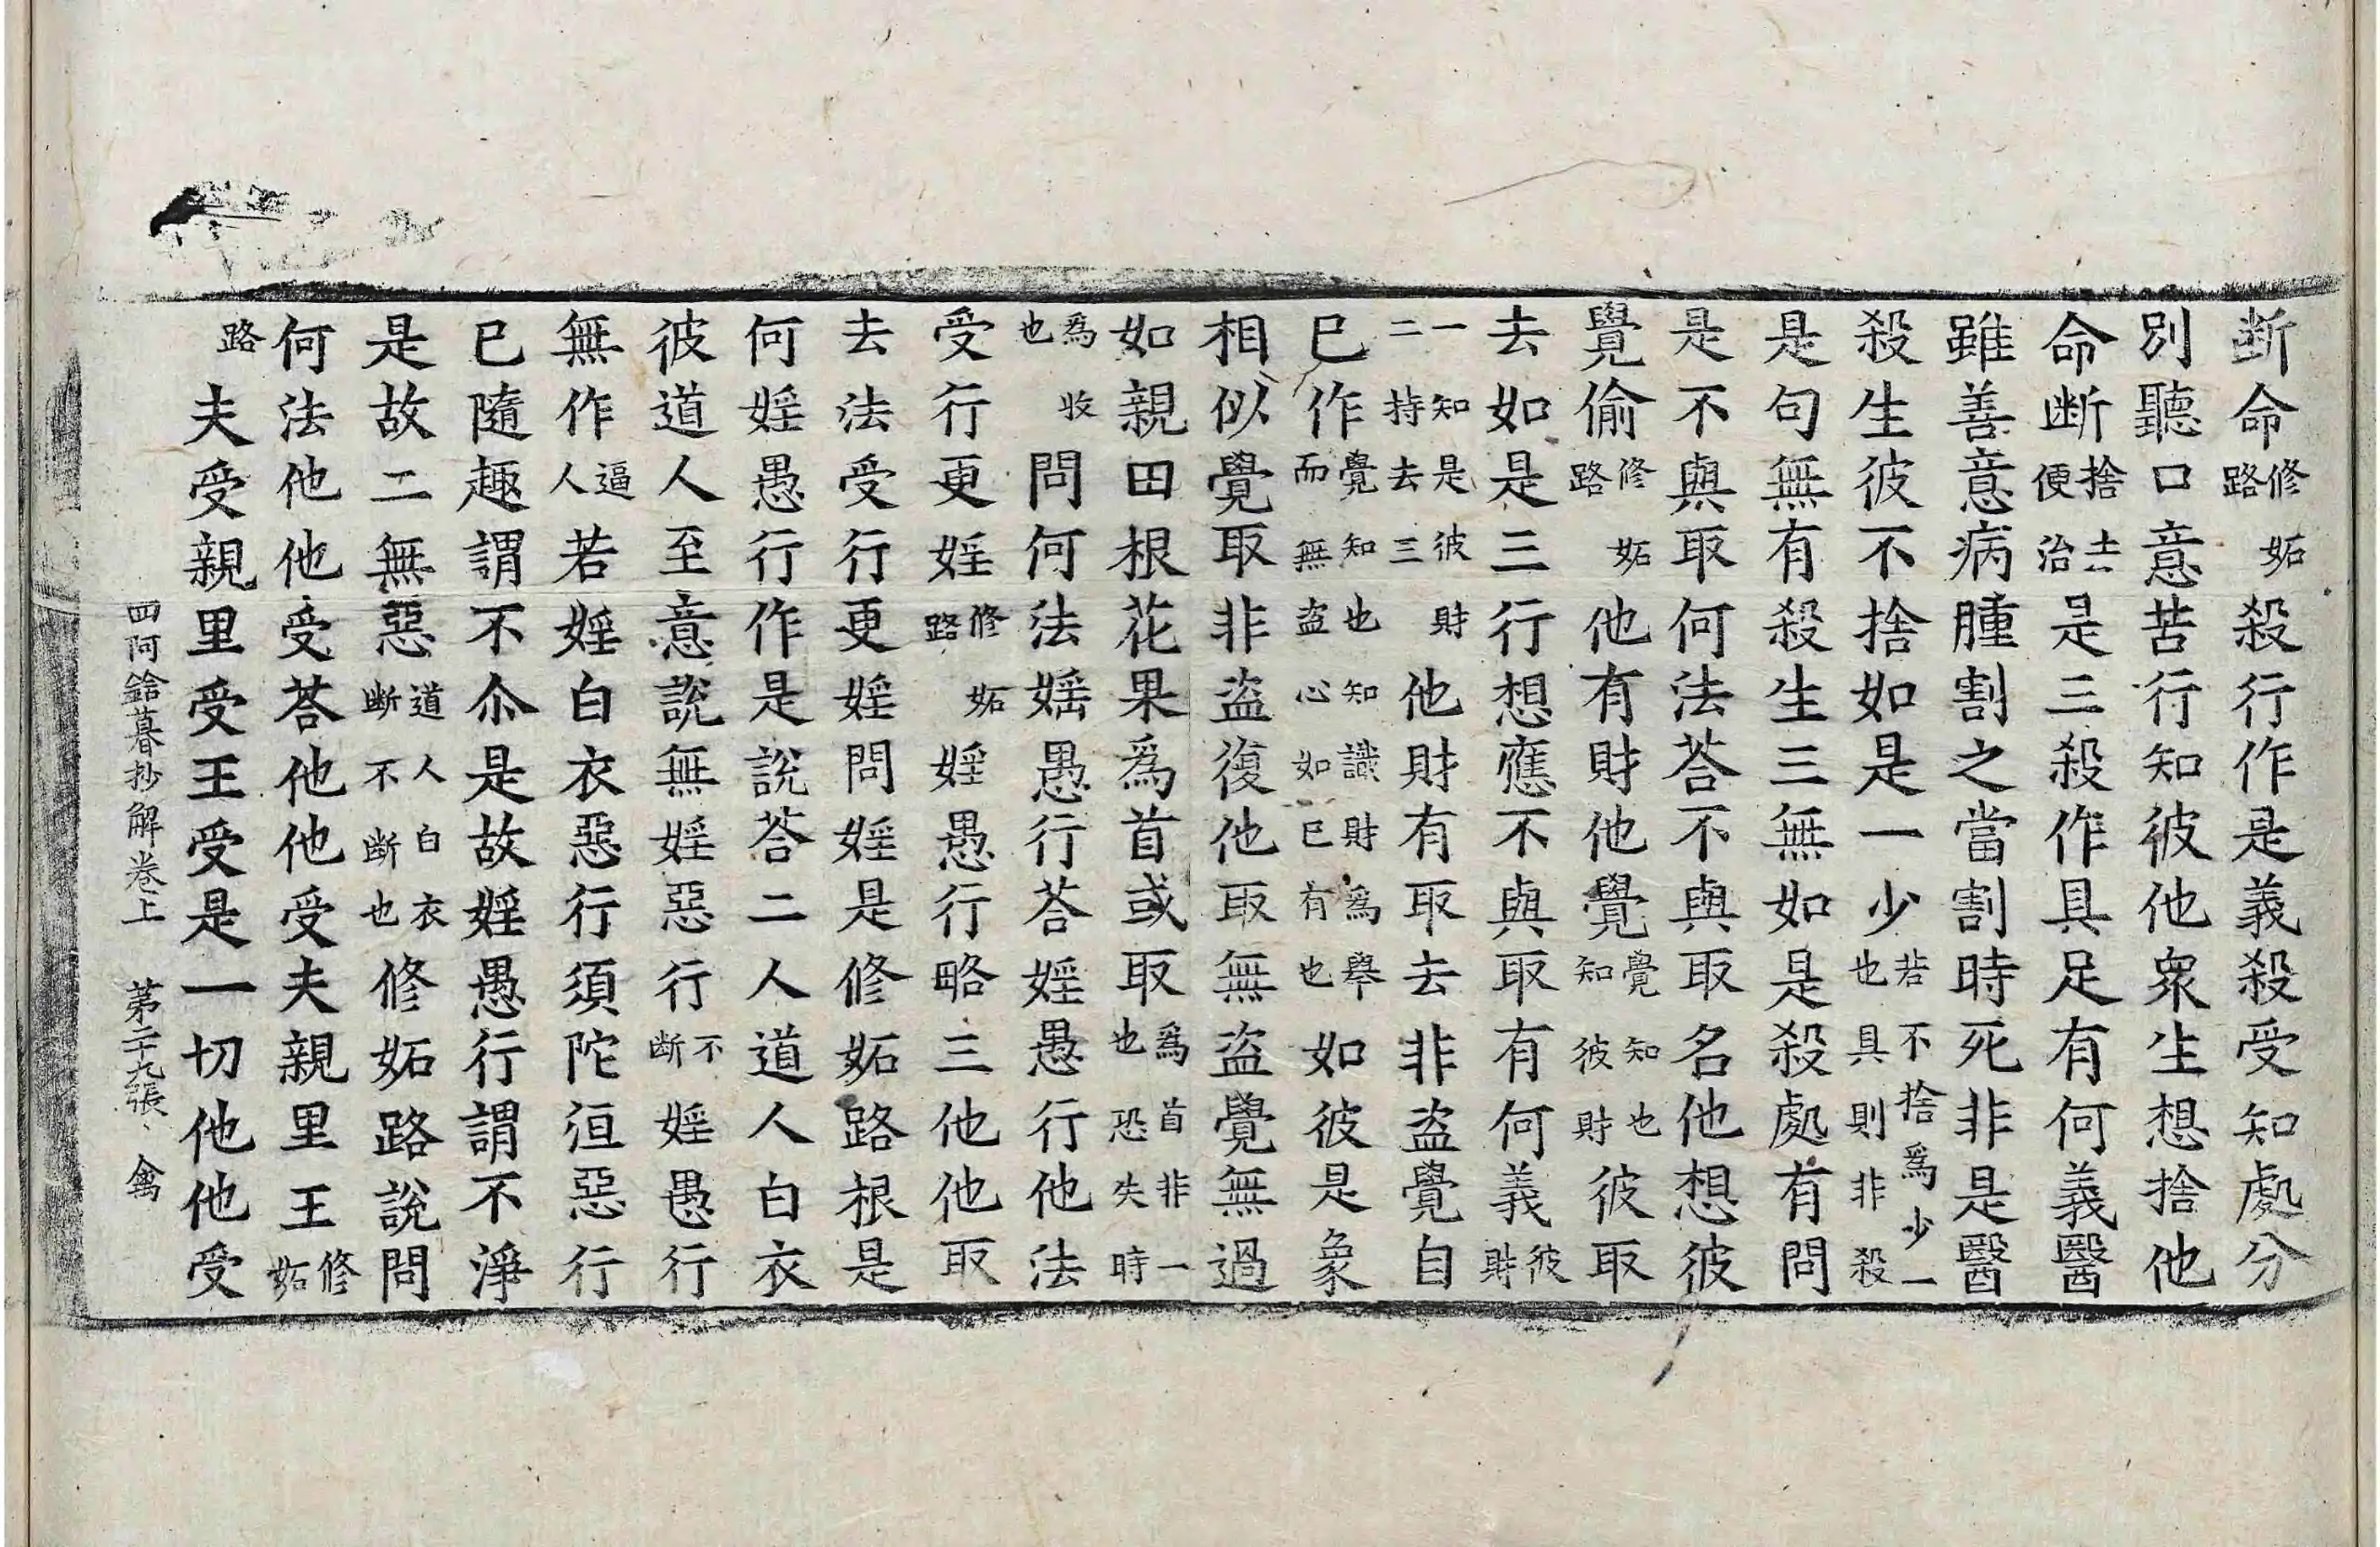 断命修妬路殺行作是義殺受知處分
別聽口意苦行知彼他衆生想捨他
命断捨士便治是三殺作具足有何義醫
雖善意病腫割之當割時死非是醫
殺生彼不捨如是一少若不捨爲少一也具則非殺
是句無有殺生三無如是殺處有問
是不與取何法荅不與取名他想彼
覺偷修妬路他有財他覺覺知也知彼財彼取
去如是三行想應不與取有何義彼財
一知是彼財二持去三他財有取去非盜覺自
已作覺知也知識財爲舉而無盜心如已有也如彼是象
相似覺取非盜復他取無盜覺無過
如親田根花果爲首或取爲首非一也恐失時
爲收也問何法婬愚行荅婬愚行他法
受行更婬修妬路婬愚行略三他他取
去法受行更婬問婬是修妬路根是
何婬愚行作是說荅二人道人白衣
彼道人至意說無婬惡行不断婬愚行
無作逼人若婬白衣惡行須陀洹惡行
已隨趣謂不尒是故婬愚行謂不淨
是故二無惡道人白衣断不断也修妬路說問
何法他他受荅他他受夫親里王修妬
路夫受親里受王受是一切他他受
四阿鋡暮抄解卷上 第二十九張 禽